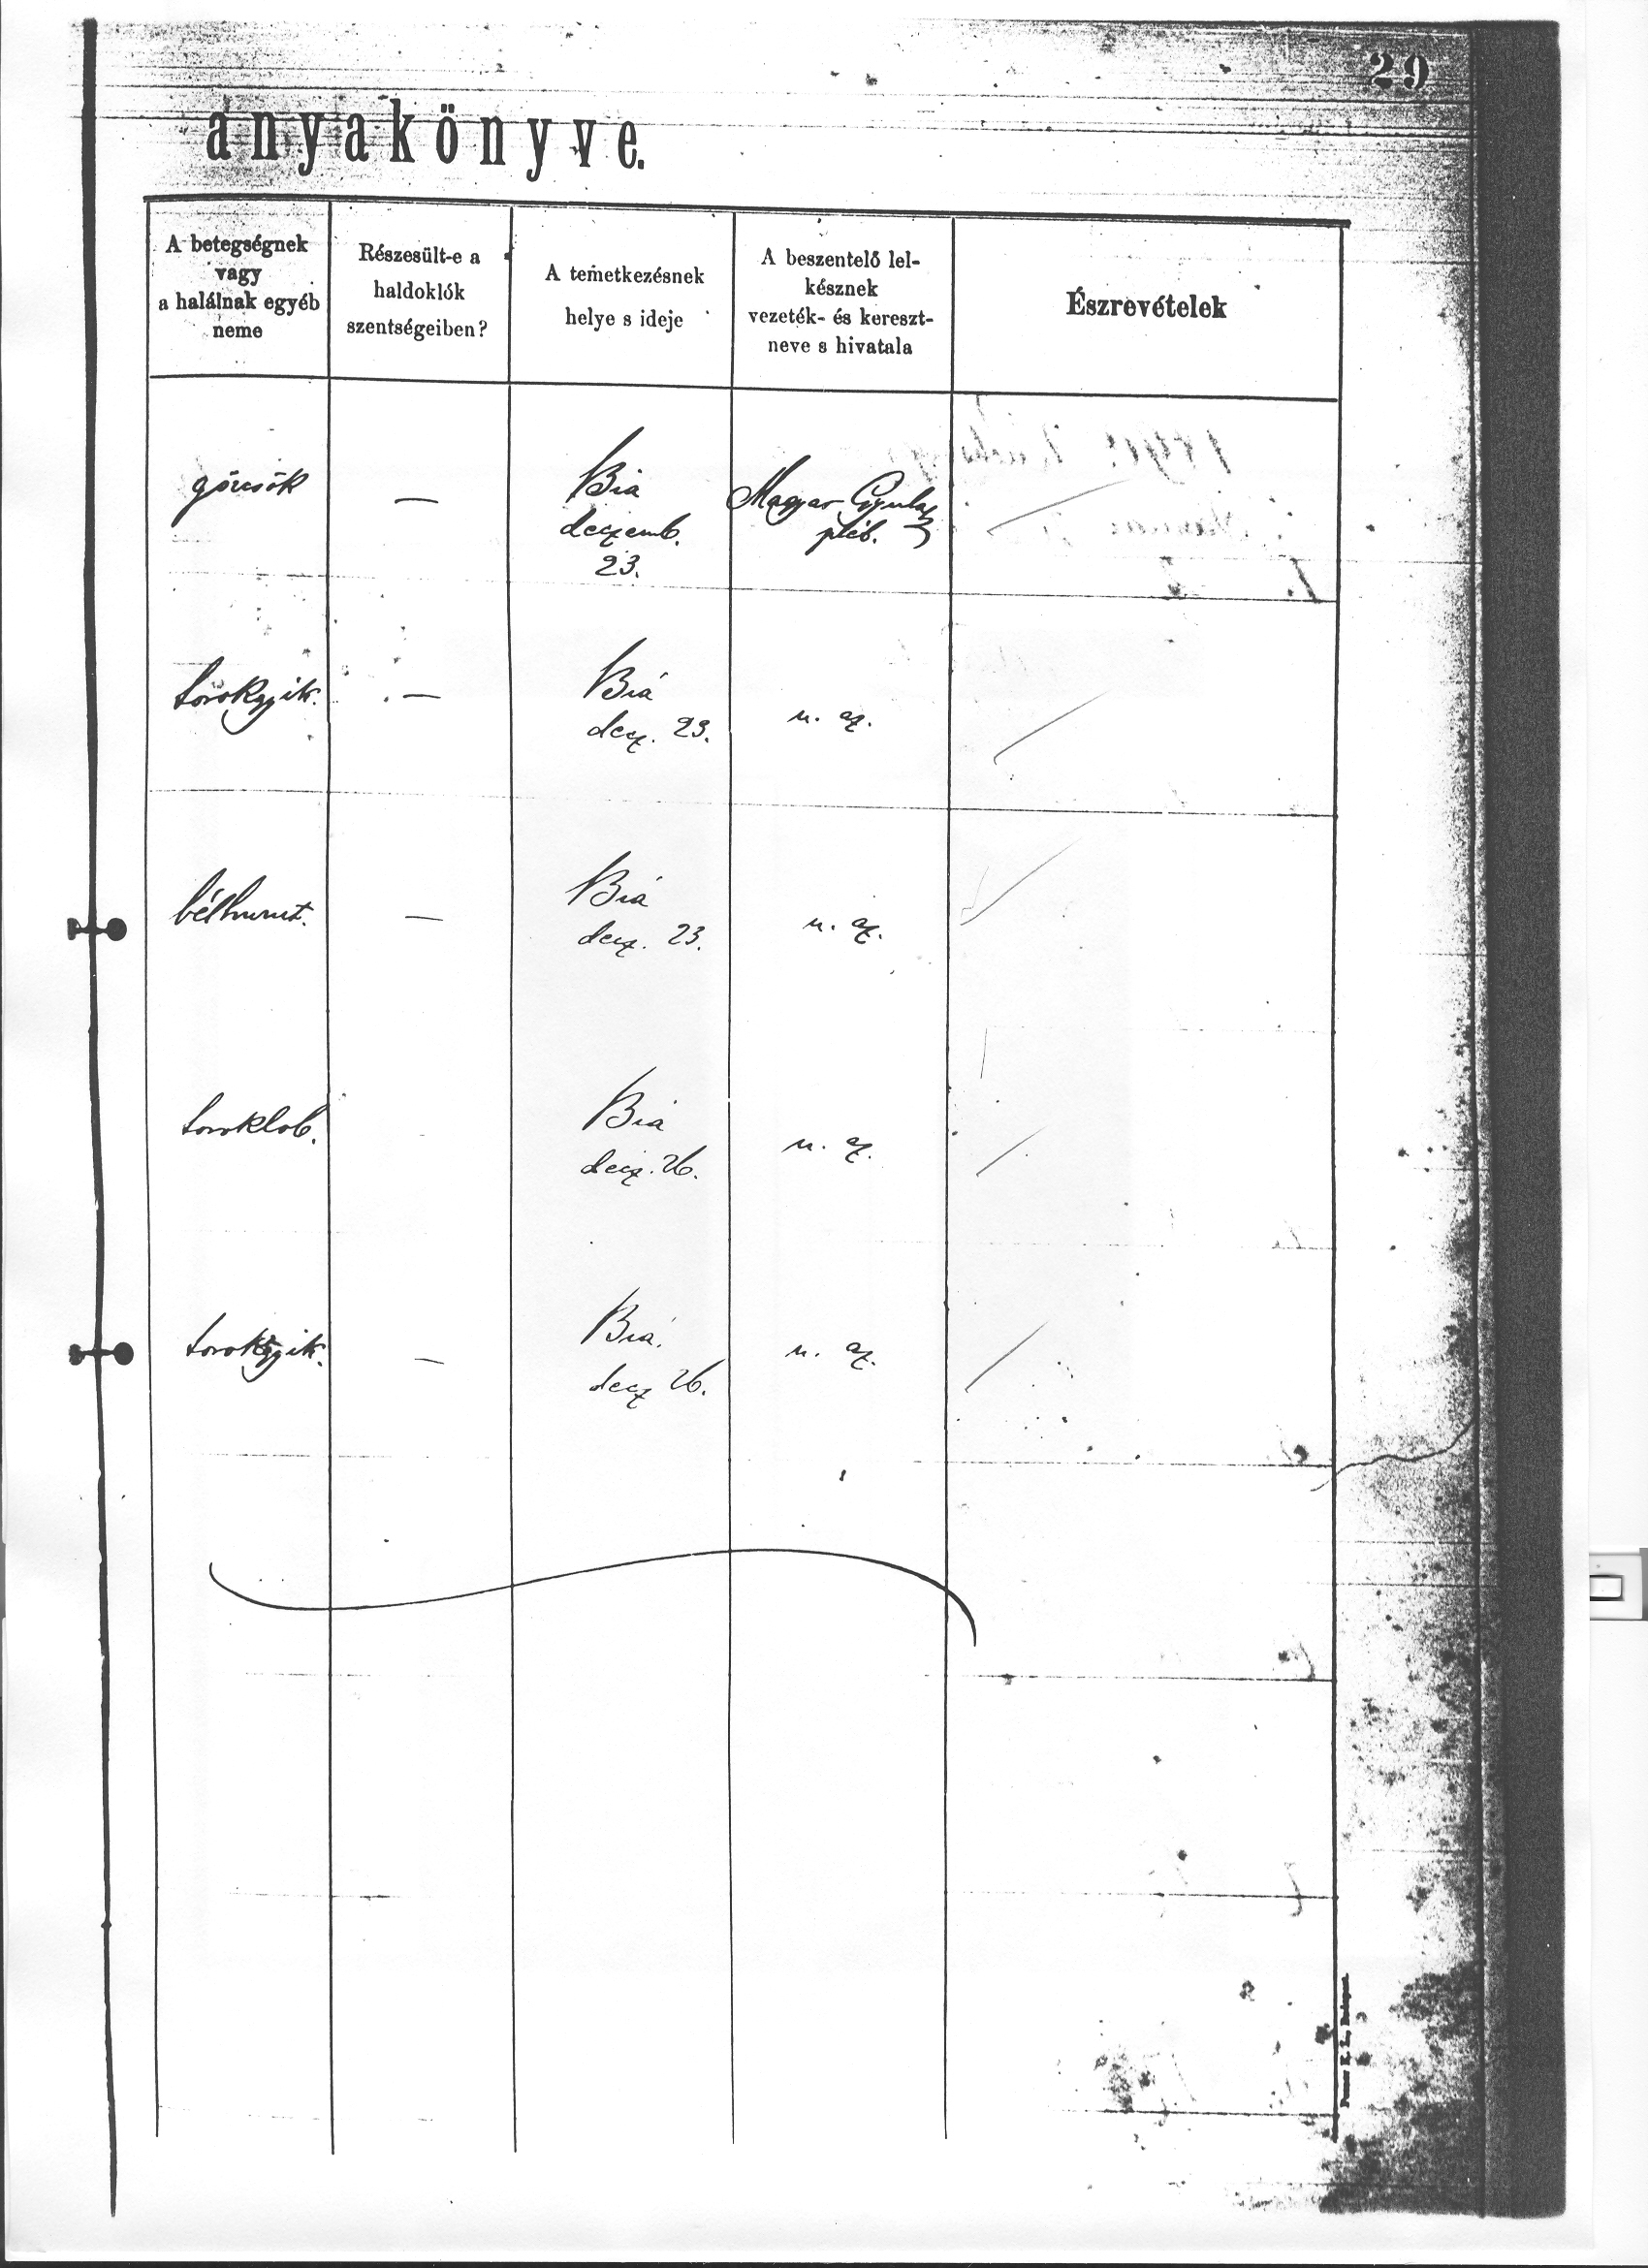 29
anyakönyve.
A betegségnek
vagy
a halálnak egyéb
neme
Részesült-e a
haldoklók
szentségeiben?
A temetkezésnek
helye s ideje
A beszentelő lel-
késznek
vezeték- és kereszt-
neve s hivatala
Észrevételek
görcsök
—
Bia
deczemb.
23.
Magyar Gyula
pléb.
torokgyik.
—
Biá
decz. 23.
u. az.
bélhurut.
—
Biá
decz. 23.
u. az.
toroklob.
Biá
decz. 26.
u. az.
torokgyik.
—
Biá.
decz 26.
u. az.